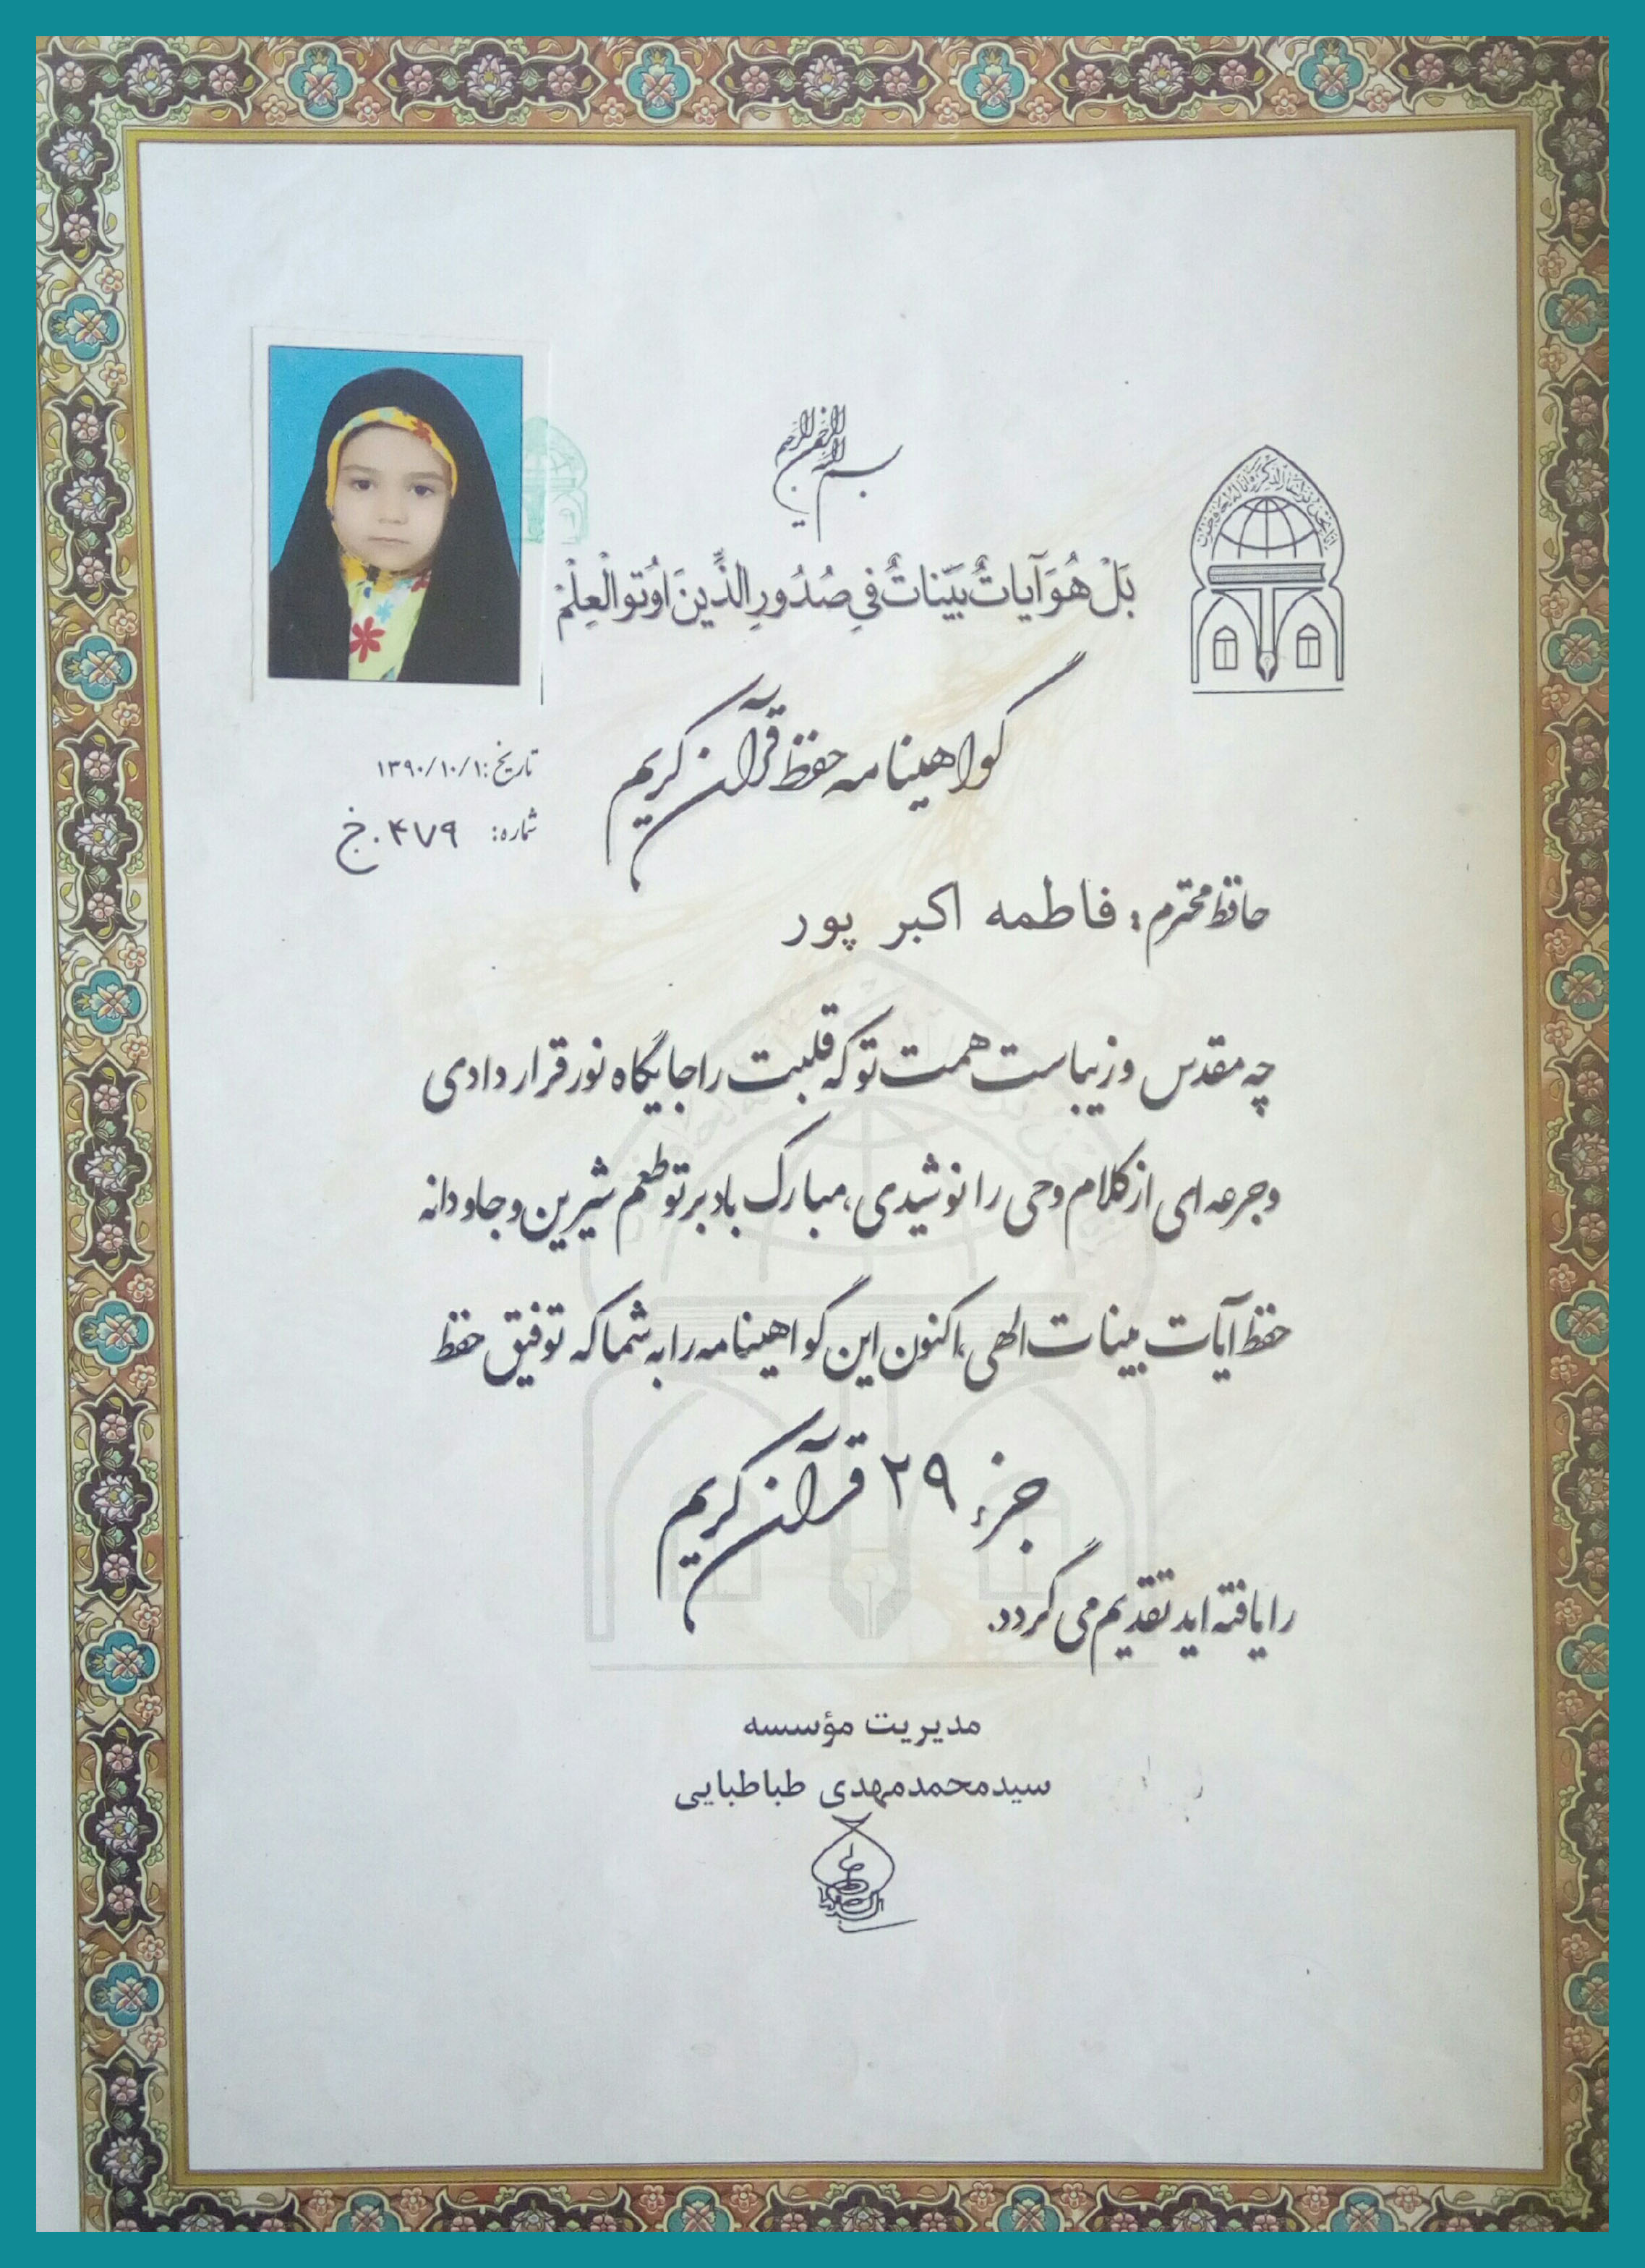 بسم الله الرحمن الرحیم
بَلْ هُوَ آیاتٌ بَیِّناتٌ فِی صُدُورِ الَّذِینَ اُوتوالْعِلْمْ
گواهینامه حفظ قرآن کریم
تاریخ: ۱۳۹۰/۱۰/۱
شماره: ۴۷۹.خ
حافظ محترم: فاطمه اکبر پور
چه مقدس و زیباست همت تو که قلبت را جایگاه نور قرار دادی
و جرعه ای از کلام وحی را نوشیدی، مبارک باد بر تو طعم شیرین و جاودانه
حفظ آیات بینات الهی، اکنون این گواهینامه را به شما که توفیق حفظ
جزء ۲۹ قرآن کریم
را یافته اید تقدیم می گردد.
مدیریت مؤسسه
سیدمحمدمهدی طباطبایی